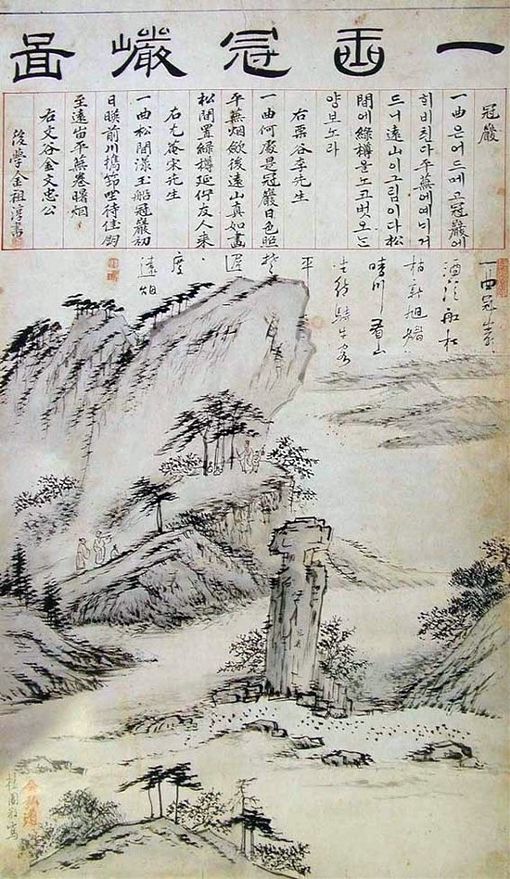 一曲冠巖圖
冠巖
一曲은어드메고冠巖에
희비친다平蕪에예니거
드니遠山이그림이다松
間에綠樽을노코벗오는
양보노라
右栗谷李先生
一曲何處是冠巖日色照
平蕪烟斂後遠山真如畵
松間置綠樽延佇友人來
右尤菴宋先生
一曲松間漾玉船冠巖初
日暎前川攜笻坐待佳朋
至遠岫平蕪卷曙烟
右文谷金文忠公
後學金祖淳書
一曲冠巖
晴川看山
坐待騎牛客
平
金弘道
檀園
寫